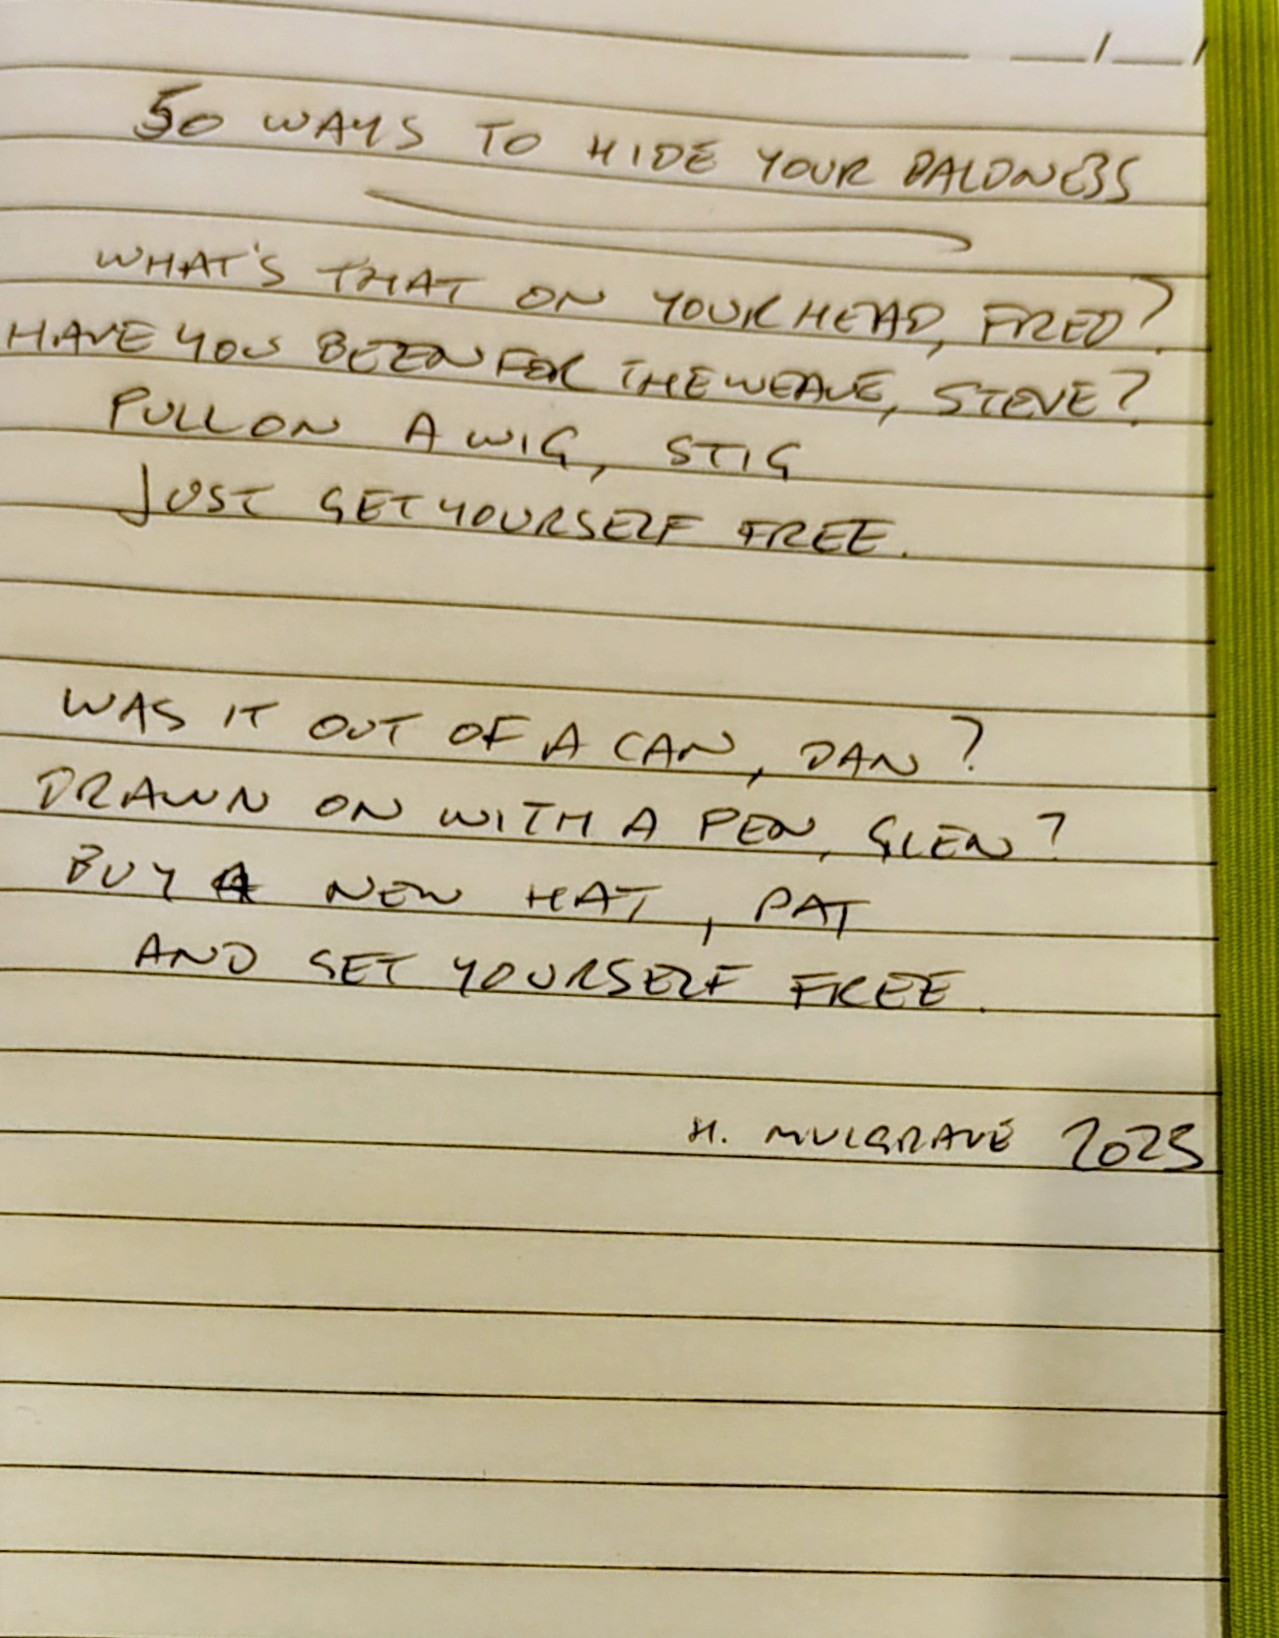 50 WAYS TO HIDE YOUR BALDNESS
WHAT'S THAT ON YOUR HEAD, FRED?
HAVE YOU BEEN FOR THE WEAVE, STEVE?
PULL ON A WIG, STIG
JUST GET YOURSELF FREE.
WAS IT OUT OF A CAN, DAN?
DRAWN ON WITH A PEN, GLEN?
BUY A NEW HAT, PAT
AND GET YOURSELF FREE.
H. MULGRAVE 2025